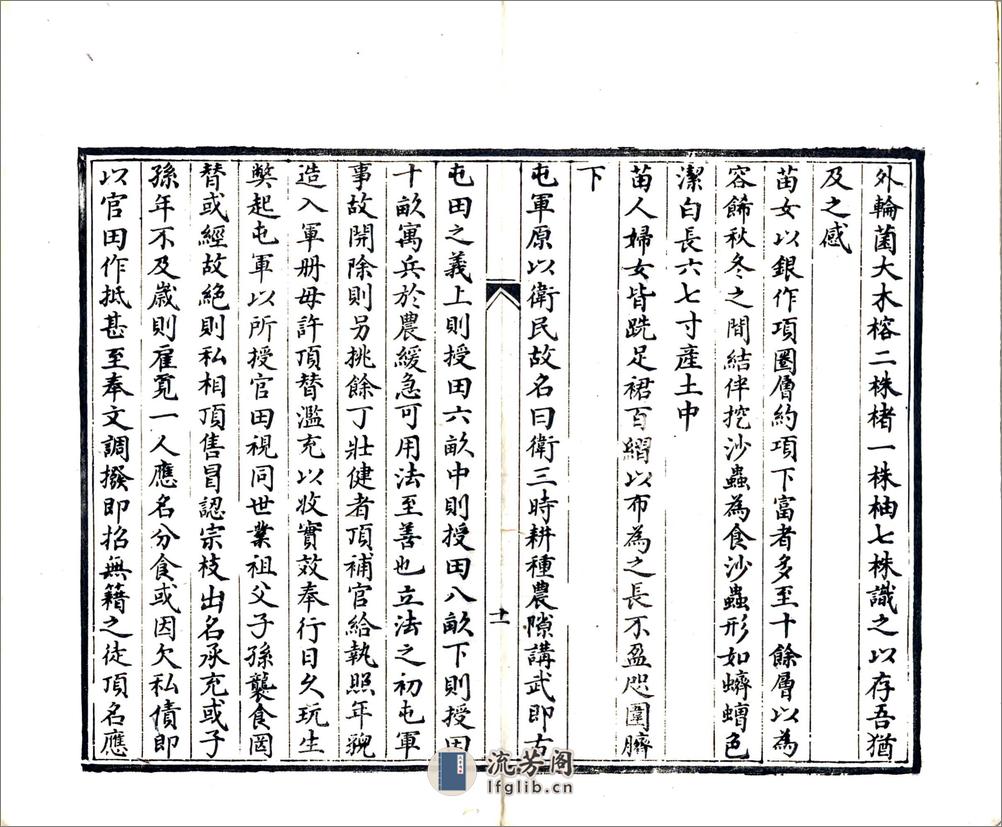 外輪菌大木榕二株楮一株柚七株識之以存吾猶
及之感
苗女以銀作項圈層約項下富者多至十餘層以為
容餙秋冬之間結伴挖沙蟲為食沙蟲形如蠐螬色
潔白長六七寸產土中
苗人婦女皆跣足裙百縐以布為之長不盈咫圍臍
下
屯軍原以衛民故名曰衛三時耕種農隙講武即古
十一
屯田之義上則授田六畝中則授田八畝下則授田
十畝寓兵於農緩急可用法至善也立法之初屯軍
事故開除則另挑餘丁壯健者頂補官給執照年貌
造入軍册毋許頂替濫充以收實效奉行日久玩生
獘起屯軍以所授官田視同世業祖父子孫襲食罔
替或經故絕則私相頂售冒認宗枝出名承充或子
孫年不及歲則雇覓一人應名分食或因欠私債即
以官田作抵甚至奉文調撥即招無籍之徒頂名應
流芳阁
lfglib.cn